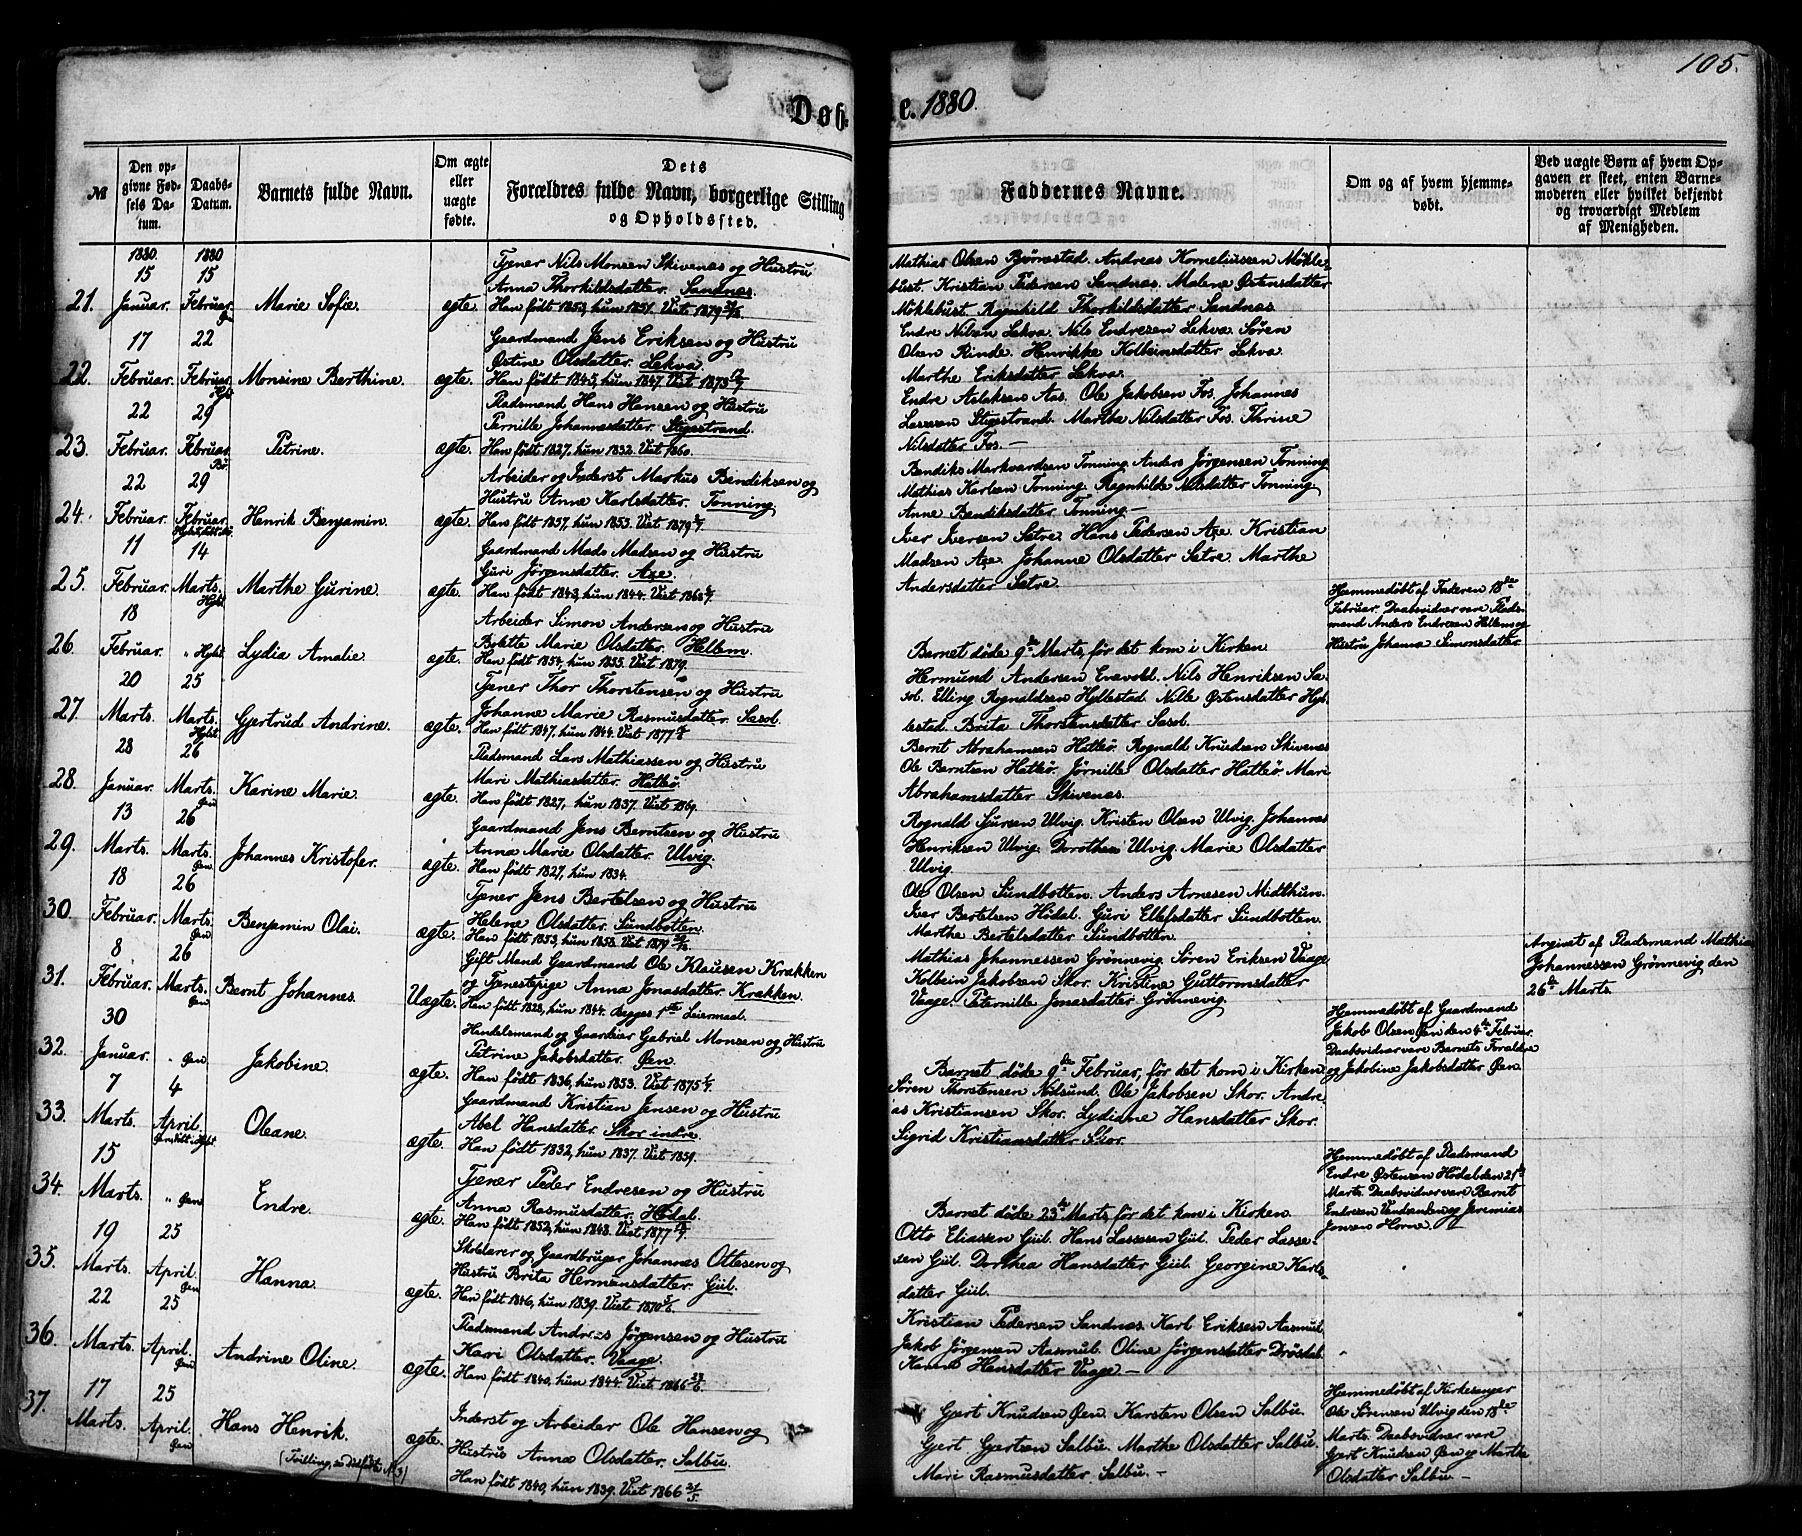 105.
Døbte. 1880.
№
Den opgivne Fødsels Datum.
Daabs-Datum.
Barnets fulde Navn.
Om ægte eller uægte fødte.
Dets Forældres fulde Navn, borgerlige Stilling og Opholdssted.
Faddernes Navne.
Om og af hvem hjemmedøbt.
Ved uægte Børn af hvem Opgaven er skeet, enten Barnemoderen eller hvilket bekjendt og troværdigt Medlem af Menigheden.
1880. 1880
21. 15 Januar. 15 Februar. Øen Marie Sofie. ægte.
Tjener Nils Monsen Skivenæs og Hustru
Anna Thorkildsdatter. Sandnæs.
Han født 1853, hun 1857. Viet 1879
Mathias Olsen Bjørnestad. Andreas Korneliussen Mökle-
bust. Kristian Pedersen Sandnæs. Malene Østensdatter
Möklebust. Ragnhild Thorkildsdatter Sandnæs
22. 17 Februar. 22 Februar. Hyl. Monsine Berthine. ægte.
Gaardmand Jens Eriksen og Hustru
Østine Olsdatter. Lekva.
Han født 1845, hun 1847. Viet 1873
Endre Nilsen Lekva. Nils Endresen Lekva. Søren
Olsen Rinde. Henrikke Kolbeinsdatter Lekva.
Marthe Eriksdatter Lekva.
23. 22 Februar. 29 Februar. Petrine. ægte.
Pladsmand Hans Hansen og Hustru
Pernille Johannesdatter. Stegestrand.
Han født 1827, hun 1832. Viet 1860.
Endre Aslaksen Aas. Ole Jakobsen Fos. Johannes
Lassesen Stegestrand. Martha Nilsdatter Fos. Thrine
Nilsdatter Fos.—
24. 22 Februar. 29 Februar. Henrik Benjamin. ægte.
Arbeider og Inderst Markus Bendiksen og
Hustru Anne Karlsdatter. Tonning.
Han født 1857, hun 1853. Viet 1879
Bendiks Markvardsen Tonning. Anders Jörgensen Tonning
Mathias Karlsen Tonning. Ragnhilde Nilsdatter Tonning.
Anne Bendiksdatter Tonning.—
25. 11 Februar. 14 Marts. Hyl. Marthe Gurine. ægte.
Gaardmand Mads Madsen og Hustru
Guri Jörgensdatter. Axe.
Han født 1843, hun 1844. Viet 1868
Iver Iversen Sætre. Hans Pedersen Axe. Kristian
Madsen Axe. Johanne Olsdatter Sætre. Marthe
Andersdatter Sætre.
26. 18 Februar. „ Hylst. Lydia Amalie. ægte.
Arbeider Simon Andersen og Hustru
Bolette Marie Olsdatter. Hellem.
Han født 1854, hun 1855. Viet 1879.
Barnet døde 9de Marts, før det kom i Kirken
Hjemmedøbt af Faderen 18de
Februar. Daabsvidner vare Plads-
mand Anders Endresen Hellem og
Hustru Johanna Simonsdatter
27. 20 Marts. 25 Marts. Hylst. Gjertrud Andrine. ægte.
Tjener Thor Thorstensen og Hustru
Johanne Marie Rasmusdatter. Sasol.
Han født 1847, hun 1844. Viet 1877
Hermund Andersen Enevold. Nils Henriksen Sa-
sol. Elling Rognaldsen Hyllestad. Nille Østensdatter Hyl-
lestad. Brita Thorstensdatter Sasol.
28. 28 Januar. 26 Marts. Øen Karine Marie. ægte.
Pladsmand Lars Mathiassen og Hustru
Mari Mathiasdatter. Hatlø.
Han født 1827, hun 1837. Viet 1869.
Bernt Abrahamsen Hatlø. Rognald Knudsen Skivenæs
Ole Berntsen Hatlø. Jørnille Olsdatter Hatlø. Mari
Abrahamsdatter Skivenæs.
29. 13 Marts. 26 Marts. Øen Johannes Kristofer. ægte.
Gaardmand Jens Berntsen og Hustru
Anna Marie Olsdatter. Ulvig.
Han født 1827, hun 1834.
Rognald Sjursen Ulvig. Kristen Olsen Ulvig. Johannes
Henriksen Ulvig. Dorothea Ulvig. Marie Olsdatter
Ulvig.
30. 18 Februar. 26 Marts. Øen Benjamin Olai. ægte.
Tjener Jens Bertelsen og Hustru
Helene Olsdatter. Sundbotten.
Han født 1853, hun 1858. Viet 1879
Ole Olsen Sundbotten. Anders Arnesen Midthun.
Iver Bertelsen Hødal. Guri Ellefsdatter Sundbotten.
Marthe Bertelsdatter Sundbotten.
31. 8 Februar. 26 Marts. Øen Bernt Johannes. Uægte.
Gift Mand Gaardmand Ole Klausen Krakken
og Tjenestepige Anna Jonasdatter. Krakken.
Han født 1828, hun 1844. Begges 1ste Leiermaal.
Mathias Johannessen Grønnevig. Søren Eriksen Vaage
Kolbein Jakobsen Skor. Kristine Guttormsdatter
Vaage. Peternille Jonasdatter Grønnevig.
Angivet af Pladsmand Mathias
Johannessen Grønnevig den
26de Marts.
32. 30 Januar. „ Øen Jakobine. ægte.
Handelsmand og Gaardeier Gabriel Monsen og Hustru
Petrine Jakobsdatter. Øen.
Han født 1836, hun 1853. Viet 1875
Barnet døde 9de Februar, før det kom i Kirken
Hjemmedøbt af Gaardmand
Jakob Olsen Øen den 4de Februar.
Daabsvidner vare Barnets Forældre
og Jakobine Jakobsdatter Øen
33. 7 Marts. 4 April. Oleane. ægte.
Gaardmand Kristian Jensen og Hustru
Abel Hansdatter. Skor indre.
Han født 1832, hun 1837. Viet 1859.
Søren Thorstensen Nedsund. Ole Jakobsen Skor. Andre-
as Kristiansen Skor. Lydiane Hansdatter Skor.
Sigrid Kristiansdatter Skor.
34. 15 Marts. „ Øen Endre. ægte.
Tjener Peder Endresen og Hustru
Anna Rasmusdatter. Hødal.
Han født 1852, hun 1848. Viet 1877
Barnet døde 23de Marts, før det kom i Kirken.
Hjemmedøbt af Pladsmand
Endre Østensen Hødal den 21de
Marts. Daabsvidner vare Bernt
Endresen og Jeremias
Jonsen Horne.
35. 19 Marts. 25 April. Øen Hanna. ægte.
Skolelærer og Gaardbruger Johannes Ottesen og
Hustru Brita Hermansdatter. Giil.
Han født 1846, hun 1839. Viet 1870
Otto Eliassen Giil. Hans Lassesen Giil. Peder Lasse-
sen Giil. Dorthea Hansdatter Giil. Georgine Karls-
datter Giil.
36. 22 Marts. 25 April. Øen Andrine Oline. ægte.
Pladsmand Andreas Jørgensen og Hustru
Kari Olsdatter. Vaage.
Han født 1840, hun 1844. Viet 1866
Kristian Pedersen Sandnæs. Karl Eriksen Aasmul.
Jakob Jørgensen Aasmul. Oline Jørgensdatter Drøsdal.
Hanna Hansdatter Vaage.—
37. 17 Marts. 25 April. Øen Hans Henrik.
(Tvilling, se dødfødte № 3) ægte.
Inderst og Arbeider Ole Hansen og
Hustru Anna Olsdatter. Salbu.
Han født 1840, hun 1839. Viet 1866 21/5.
Gjert Knudsen Øen. Karsten Olsen Salbu.
Gjert Gjertsen Salbu. Marthe Olsdatter Salbu.
Mari Rasmusdatter Salbu.—
Hjemmedøbt af Kirkesanger
Ole Sørensen Ulvig den 18de
Marts. Daabsvidner vare
Gjert Knudsen Øen og Martha
Olsdatter Salbu.—